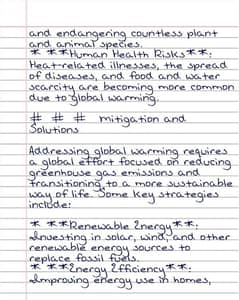 and endangering countless plant
and animal species.
* **Human Health Risks**:
Heat-related illnesses, the spread
of diseases, and food and water
scarcity are becoming more common
due to global warming.
# # # mitigation and
Solutions
Addressing global warming requires
a global effort focused on reducing
greenhouse gas emissions and
transitioning to a more sustainable
way of life. Some key strategies
include:
* **Renewable Energy**:
Investing in solar, wind, and other
renewable energy sources to
replace fossil fuels.
* **Energy Efficiency**:
Improving energy use in homes,